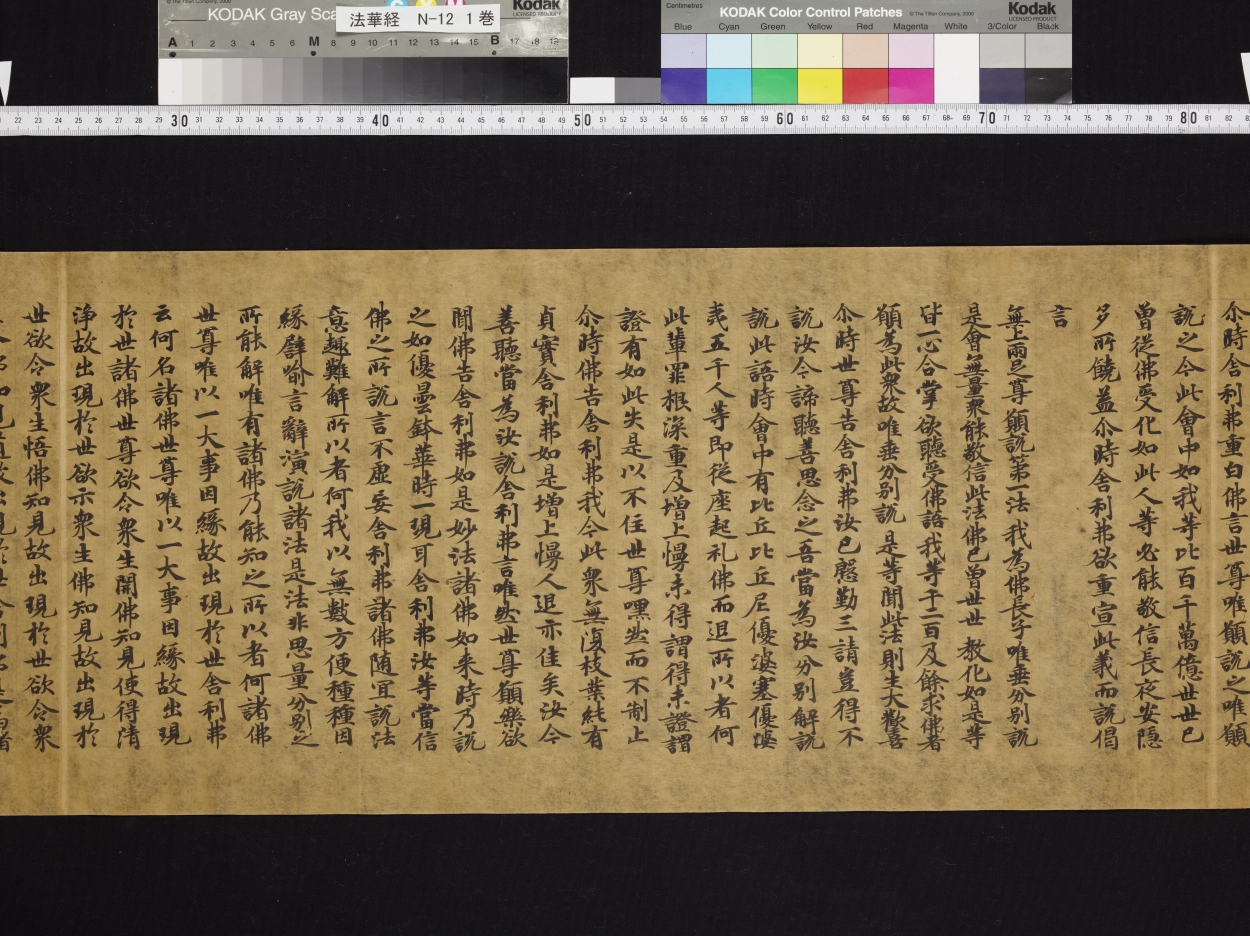 © The Tiffen Company, 2000
KODAK Gray Scale
Kodak
LICENSED PRODUCT
法華経 N-12 1巻
A 1 2 3 4 5 6 M 8 9 10 11 12 13 14 15 B 17 18 19
Centimetres
KODAK Color Control Patches
© The Tiffen Company, 2000
Kodak
LICENSED PRODUCT
Blue Cyan Green Yellow Red Magenta White 3/Color Black
22 23 24 25 26 27 28 29 30 31 32 33 34 35 36 37 38 39 40 41 42 43 44 45 46 47 48 49 50 51 52 53 54 55 56 57 58 59 60 61 62 63 64 65 66 67 68 69 70 71 72 73 74 75 76 77 78 79 80 81 82
尒時舍利弗重白佛言世尊唯願說之唯願
說之今此會中如我等比百千萬億世世已
曾從佛受化如此人等必能敬信長夜安隱
多所饒益尒時舍利弗欲重宣此義而說偈
言
無上兩足尊願說第一法我為佛長子唯垂分別說
是會無量衆能敬信此法佛已曾世世教化如是等
皆一心合掌欲聽受佛語我等千二百及餘求佛者
願為此衆故唯垂分別說是等聞此法則生大歡喜
尒時世尊告舍利弗汝已慇勤三請豈得不
說汝今諦聽善思念之吾當為汝分別解說
說此語時會中有比丘比丘尼優婆塞優婆
夷五千人等即從座起礼佛而退所以者何
此輩罪根深重及增上慢未得謂得未證謂
證有如此失是以不住世尊嘿然而不制止
尒時佛告舍利弗我今此衆無復枝葉純有
貞實舍利弗如是增上慢人退亦佳矣汝今
善聽當為汝說舍利弗言唯然世尊願樂欲
聞佛告舍利弗如是妙法諸佛如来時乃說
之如優曇鉢華時一現耳舍利弗汝等當信
佛之所說言不虛妄舍利弗諸佛随宜說法
意趣難解所以者何我以無數方便種種因
緣譬喻言辭演說諸法是法非思量分別之
所能解唯有諸佛乃能知之所以者何諸佛
世尊唯以一大事因緣故出現於世舍利弗
云何名諸佛世尊唯以一大事因緣故出現
於世諸佛世尊欲令衆生開佛知見使得清
淨故出現於世欲示衆生佛知見故出現於
世欲令衆生悟佛知見故出現於世欲令衆